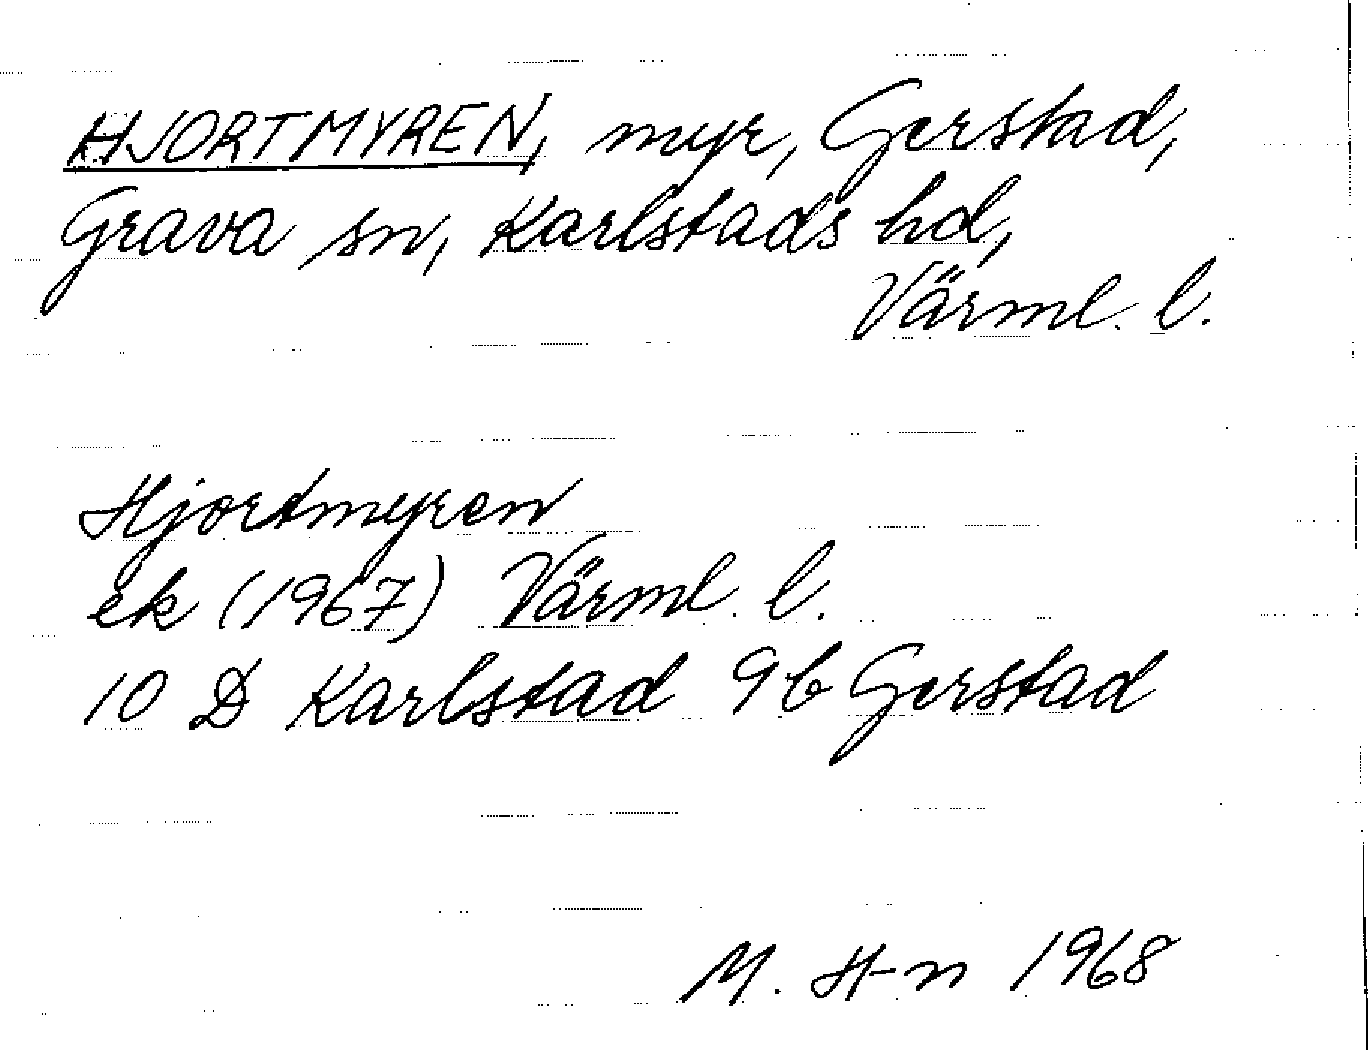 HJORTMYREN, myr, Gerstad,
Grava sn, Karlstads hd,
Värml. l.
Hjortmyren
ek (1967) Värml. l.
10 D Karlstad 9b Gerstad
M. H-n 1968